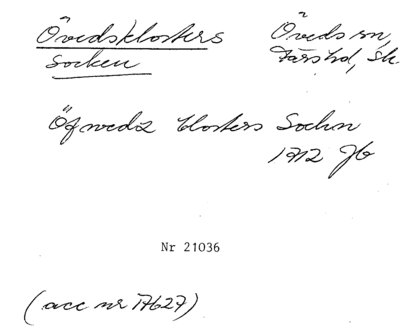 Övedsklosters Öveds sn,
Socken Färs hd, Sk.
Öfwedz Closters Sochn
1712 Jb
Nr 21036
(acc nr 17627)